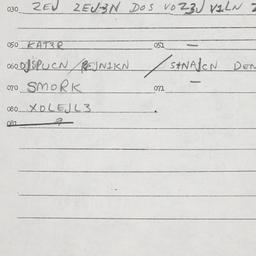 030 ZEJ ZEJ3N DOS VOZ3J V1LN
050 KAT3R 051 —
060 DJSPUCN / REJN1KN / STNAJCN DEN
070 SMORK 071 —
080 XDLEJL3
081 9